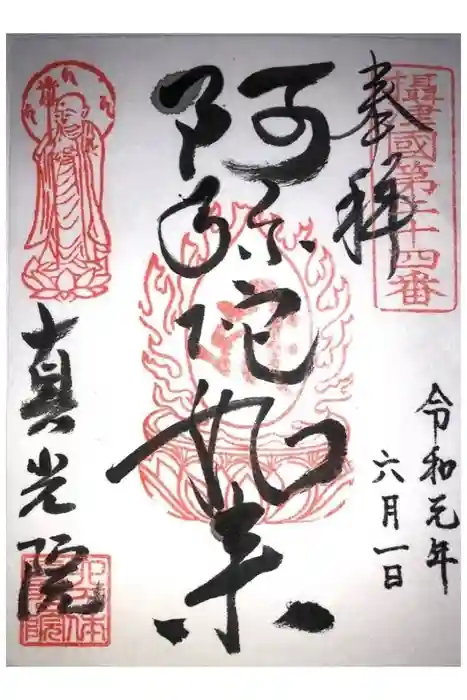 攝津國第二十四番
奉拝
阿弥陀如来
真光院
令和元年
六月一日